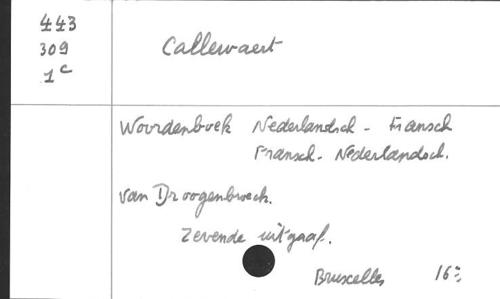 443
309
1c
Callewaert
Woordenboek Nederlandsch - Fransch
Fransch - Nederlandsch.
van Droogenbroeck.
Zevende uitgaaf.
Bruxelles 16°